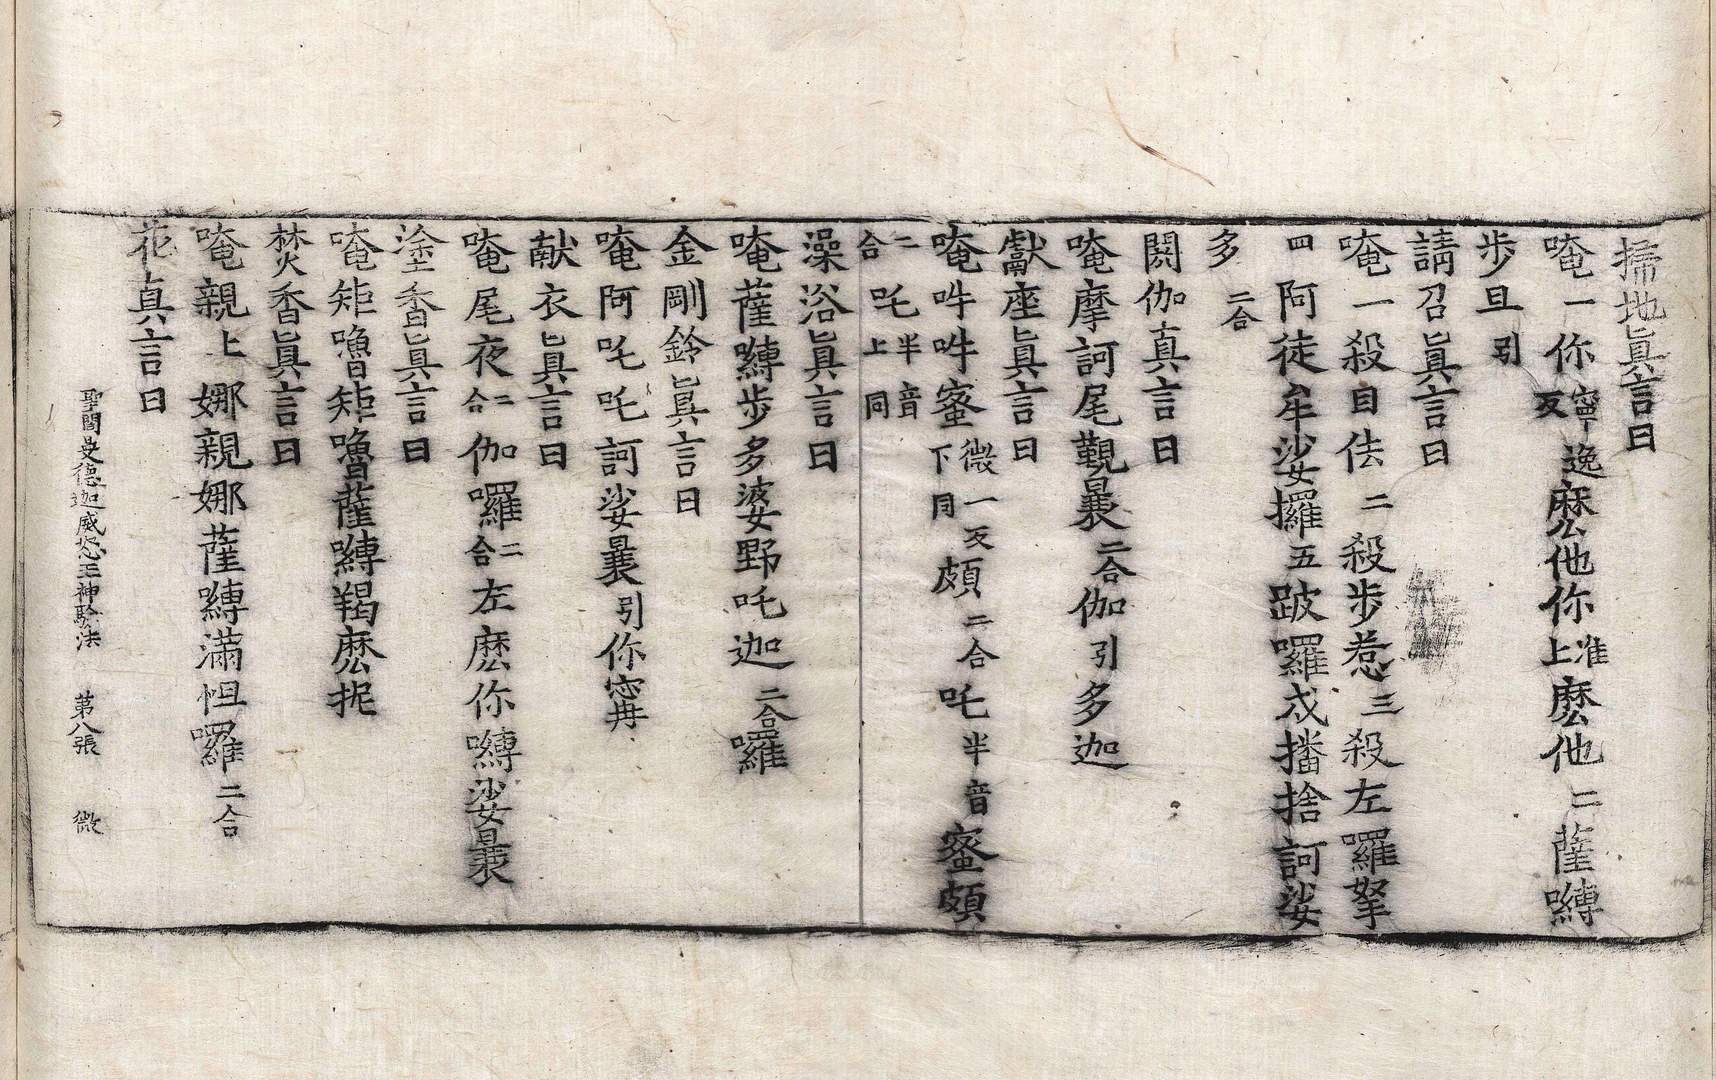 掃地眞言曰
唵一你寧逸反麽他你准上麽他二薩嚩
歩旦引
請召眞言曰
唵一殺目佉二殺歩惹三殺左囉拏
四阿徒牟娑攞五跛囉戍播捨訶娑
多二合
閼伽真言曰
唵摩訶尾覲曩二合伽引多迦
獻座眞言曰
唵吽吽蜜微一反下同頗二合吒半音蜜頗
二合吒半音上同
澡浴眞言曰
唵薩嚩歩多婆野吒迦二合囉
金剛鈴眞言曰
唵阿吒吒訶娑曩引你寗
献衣眞言曰
唵尾夜二合伽囉二合左麽你嚩娑曩
塗香眞言曰
唵矩嚕矩嚕薩嚩羯麽抳
焚香眞言曰
唵親上娜親娜薩嚩滿怛囉二合
花真言曰
聖閻曼德迦威怒王神驗法　第八張　微